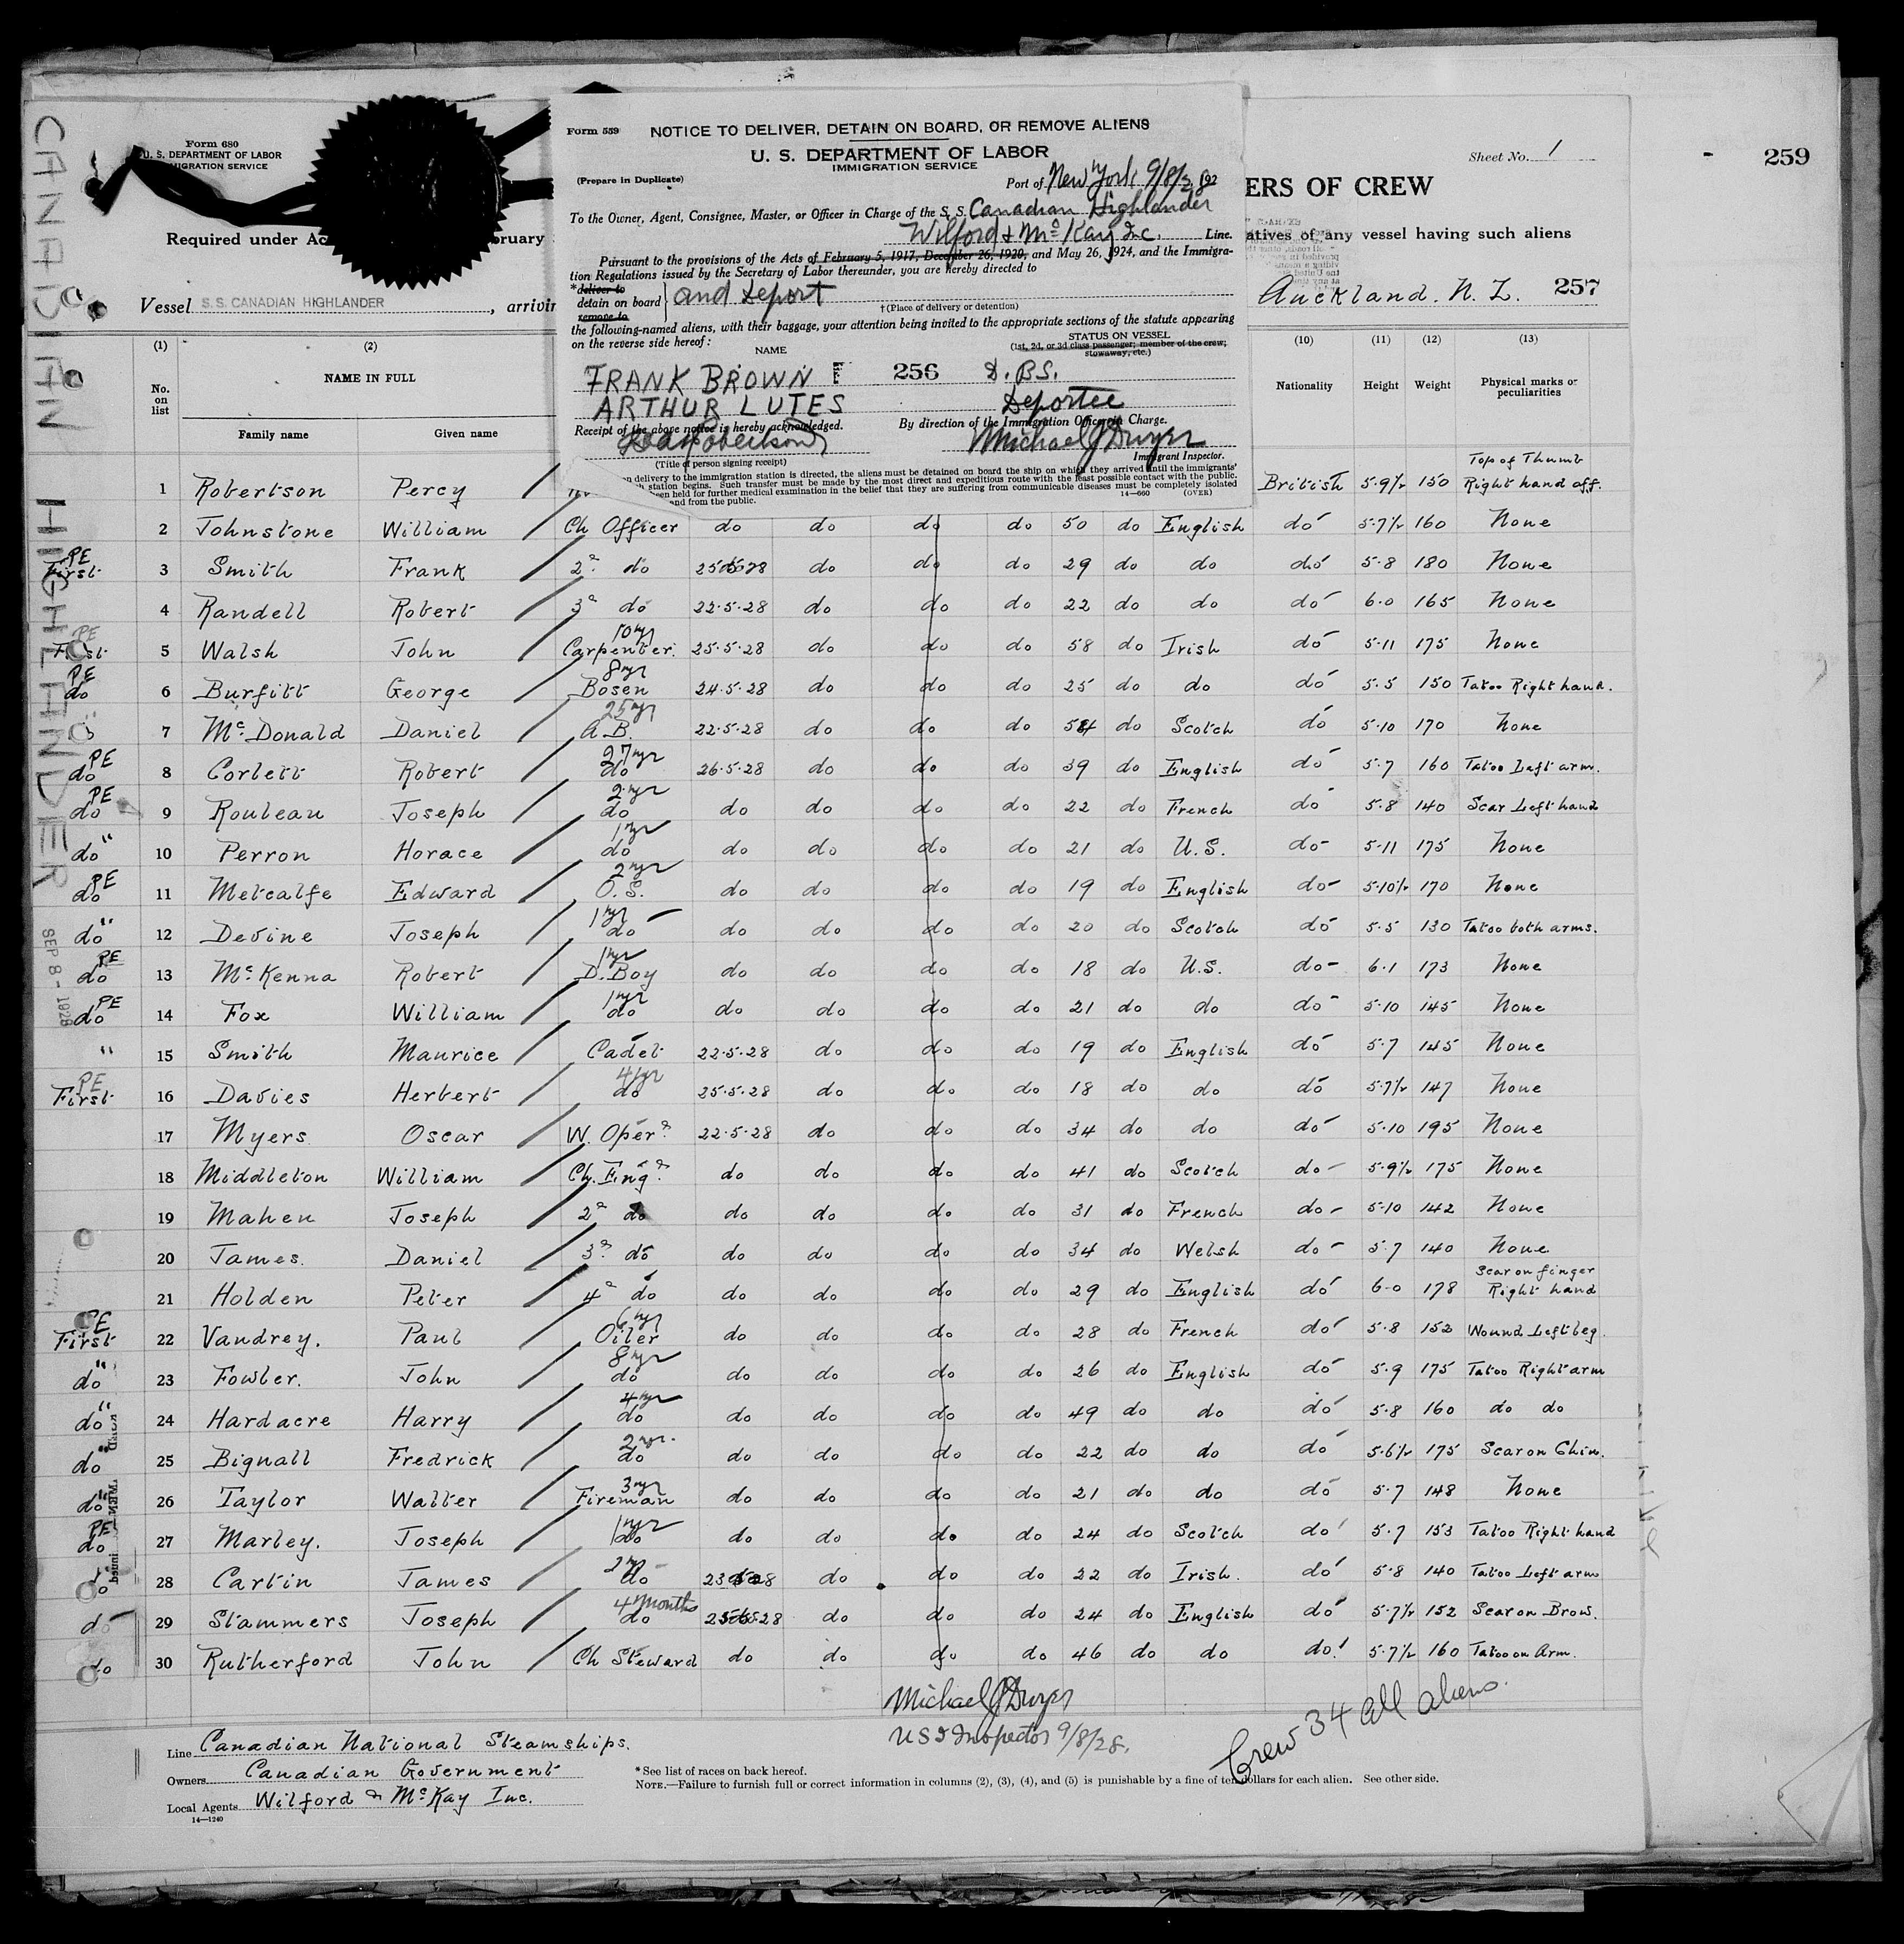 259
CANADIAN HIGHLANDER
SEP 8 - 1928
Form 680
U. S. DEPARTMENT OF LABOR
IMMIGRATION SERVICE
Required under Ac
bruary
Vessel S. S. CANADIAN HIGHLANDER, arrivin
Sheet No. 1
ERS OF CREW
atives of any vessel having such aliens
Auckland. N. Z. 257
Form 559
NOTICE TO DELIVER, DETAIN ON BOARD, OR REMOVE ALIENS
U. S. DEPARTMENT OF LABOR
IMMIGRATION SERVICE
(Prepare in Duplicate)
Port of New York 9/8/28, 192
To the Owner, Agent, Consignee, Master, or Officer in Charge of the S. S. Canadian Highlander
Wilford & McKay Inc. Line.
Pursuant to the provisions of the Acts of February 5, 1917, December 26, 1920, and May 26, 1924, and the Immigra-
tion Regulations issued by the Secretary of Labor thereunder, you are hereby directed to
*deliver to
detain on board } and Deport
remove to
†(Place of delivery or detention)
the following-named aliens, with their baggage, your attention being invited to the appropriate sections of the statute appearing
on the reverse side hereof:
NAME
STATUS ON VESSEL
(1st, 2d, or 3d class passenger; member of the crew;
stowaway, etc.)
FRANK BROWN 256 D. B.S.
ARTHUR LUTES Deportee
Receipt of the above notice is hereby acknowledged. By direction of the Immigration Officer in Charge.
Robertson Michael J Dwyer
(Title of person signing receipt) Immigrant Inspector.
n delivery to the immigration station is directed, the aliens must be detained on board the ship on which they arrived until the immigrants'
station begins. Such transfer must be made by the most direct and expeditious route with the least possible contact with the public.
een held for further medical examination in the belief that they are suffering from communicable diseases must be completely isolated
and from the public. 14—660 (OVER)
(1) (2) (10) (11) (12) (13)
No. on list NAME IN FULL Nationality Height Weight Physical marks or peculiarities
Family name Given name
1 Robertson Percy British 5-9½ 150 Top of Thumb Right hand off.
2 Johnstone William Ch Officer do do do do 50 do English do 5-7½ 160 None
PE First 3 Smith Frank 2nd do 25-5-28 do do do 29 do do do 5-8 180 None
4 Randell Robert 3rd do 22-5-28 do do do 22 do do do 6-0 165 None
PE First 5 Walsh John 10 yr Carpenter. 25-5-28 do do do 58 do Irish do 5-11 175 None
PE do 6 Burfitt George 8 yr Bosen 24-5-28 do do do 25 do do do 5.5 150 Tatoo Right hand.
7 McDonald Daniel 25 yr A.B. 22-5-28 do do do 54 do Scotch do 5-10 170 None
PE do 8 Corlett Robert 27 yr do 26-5-28 do do do 39 do English do 5-7 160 Tatoo Left arm.
PE do 9 Rouleau Joseph 2 yr do do do do do 22 do French do 5-8 140 Scar Left hand
do " 10 Perron Horace 1 yr do do do do do 21 do U.S. do 5-11 175 None
PE do 11 Metcalfe Edward 2 yr O.S. do do do do 19 do English do 5-10½ 170 None
do " 12 Devine Joseph 1 yr do do do do do 20 do Scotch do 5-5 130 Tatoo both arms.
PE do 13 McKenna Robert 1 yr D. Boy do do do do 18 do U.S. do 6-1 173 None
PE do 14 Fox William 1 yr do do do do do 21 do do do 5-10 145 None
" 15 Smith Maurice Cadet 22-5-28 do do do 19 do English do 5-7 145 None
PE First 16 Davies Herbert 4 yr do 25-5-28 do do do 18 do do do 5-7½ 147 None
17 Myers Oscar W. Oper. 22-5-28 do do do 34 do do do 5-10 195 None
18 Middleton William Ch. Eng. do do do do 41 do Scotch do 5-9½ 175 None
19 Mahen Joseph 2nd do do do do do 31 do French do 5-10 142 None
20 James. Daniel 3rd do do do do do 34 do Welsh do 5-7 140 None
21 Holden Peter 4th do do do do do 29 do English do 6-0 178 Scar on finger Right hand
PE First 22 Vandrey. Paul 6 yr Oiler do do do do 28 do French do 5-8 152 Wound Left leg.
do " 23 Fowler. John 8 yr do do do do do 26 do English do 5-9 175 Tatoo Right arm
do " 24 Hardacre Harry 4 yr do do do do do 49 do do do 5-8 160 do do
do " 25 Bignall Fredrick 2 yr. do do do do do 22 do do do 5-6½ 175 Scar on Chin.
do " 26 Taylor Walter 3 yr Fireman do do do do 21 do do do 5-7 148 None
PE do 27 Marley. Joseph 1 yr do do do do do 24 do Scotch do 5-7 153 Tatoo Right hand
do 28 Cartin James 2 yr do 23-5-28 do do do 22 do Irish. do 5-8 140 Tatoo Left arm
do 29 Stammers Joseph 4 months do 25-5-28 do do do 24 do English do 5-7½ 152 Scar on Brow.
do 30 Rutherford John Ch Steward do do do do 46 do do do 5-7½ 160 Tatoo on Arm.
Michael J Dwyer
US I Inspector 9/8/28.
Crew 34 all aliens.
Line Canadian National Steamships.
Owners Canadian Government
Local Agents Wilford & McKay Inc.
14—1240
*See list of races on back hereof.
NOTE.—Failure to furnish full or correct information in columns (2), (3), (4), and (5) is punishable by a fine of ten dollars for each alien. See other side.